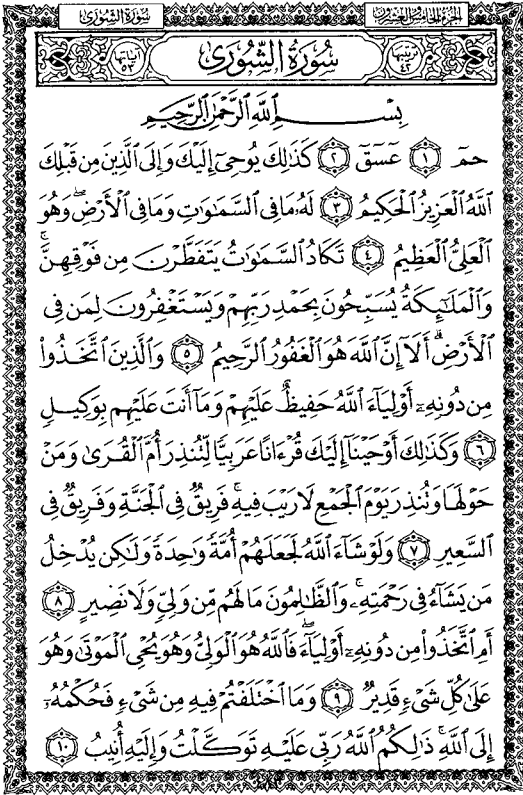 سُورَةُ الشُّورَىٰ الجُزءُ الخَامِسُ وَالعِشْرُونَ
ترتيبها ٤٢ سُورَةُ الشُّورَىٰ آياتها ٥٣
بِسْمِ اللَّهِ الرَّحْمَٰنِ الرَّحِيمِ
حمٓ ١ عٓسٓقٓ ٢ كَذَٰلِكَ يُوحِىٓ إِلَيْكَ وَإِلَى الَّذِينَ مِن قَبْلِكَ
اللَّهُ الْعَزِيزُ الْحَكِيمُ ٣ لَهُۥ مَا فِى السَّمَٰوَٰتِ وَمَا فِى الْأَرْضِ ۖ وَهُوَ
الْعَلِىُّ الْعَظِيمُ ٤ تَكَادُ السَّمَٰوَٰتُ يَتَفَطَّرْنَ مِن فَوْقِهِنَّ ۚ
وَالْمَلَٰٓئِكَةُ يُسَبِّحُونَ بِحَمْدِ رَبِّهِمْ وَيَسْتَغْفِرُونَ لِمَن فِى
الْأَرْضِ ۗ أَلَآ إِنَّ اللَّهَ هُوَ الْغَفُورُ الرَّحِيمُ ٥ وَالَّذِينَ اتَّخَذُوا۟
مِن دُونِهِۦٓ أَوْلِيَآءَ اللَّهُ حَفِيظٌ عَلَيْهِمْ وَمَآ أَنتَ عَلَيْهِم بِوَكِيلٍ
٦ وَكَذَٰلِكَ أَوْحَيْنَآ إِلَيْكَ قُرْءَانًا عَرَبِيًّا لِّتُنذِرَ أُمَّ الْقُرَىٰ وَمَنْ
حَوْلَهَا وَتُنذِرَ يَوْمَ الْجَمْعِ لَا رَيْبَ فِيهِ ۚ فَرِيقٌ فِى الْجَنَّةِ وَفَرِيقٌ فِى
السَّعِيرِ ٧ وَلَوْ شَآءَ اللَّهُ لَجَعَلَهُمْ أُمَّةً وَٰحِدَةً وَلَٰكِن يُدْخِلُ
مَن يَشَآءُ فِى رَحْمَتِهِۦ ۚ وَالظَّٰلِمُونَ مَا لَهُم مِّن وَلِىٍّ وَلَا نَصِيرٍ ٨
أَمِ اتَّخَذُوا۟ مِن دُونِهِۦٓ أَوْلِيَآءَ ۖ فَاللَّهُ هُوَ الْوَلِىُّ وَهُوَ يُحْىِ الْمَوْتَىٰ وَهُوَ
عَلَىٰ كُلِّ شَىْءٍ قَدِيرٌ ٩ وَمَا اخْتَلَفْتُمْ فِيهِ مِن شَىْءٍ فَحُكْمُهُۥٓ
إِلَى اللَّهِ ۚ ذَٰلِكُمُ اللَّهُ رَبِّى عَلَيْهِ تَوَكَّلْتُ وَإِلَيْهِ أُنِيبُ ١٠